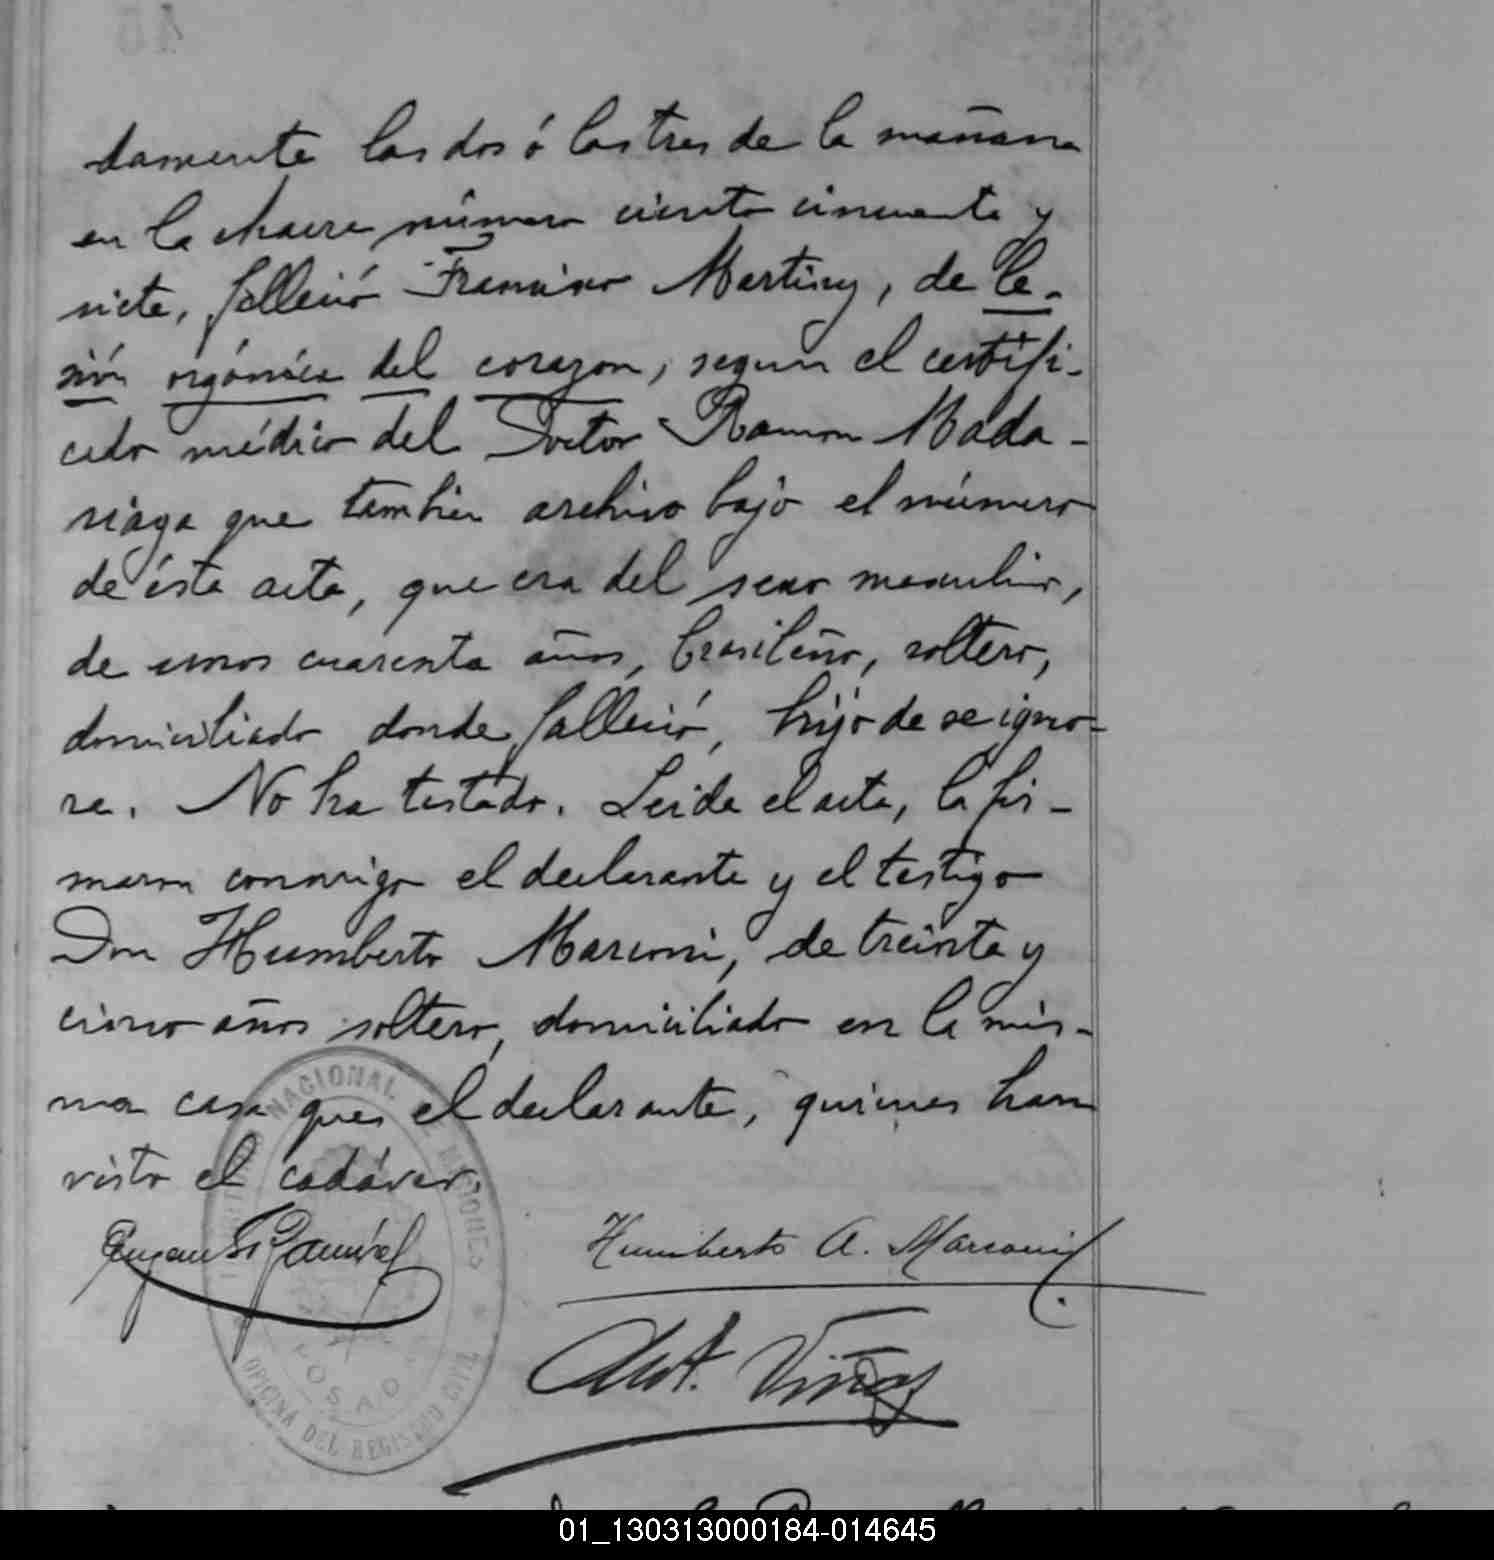 damente las dos ó las tres de la mañana
en la chacra número ciento cincuenta y
siete, falleció Francisco Martinez, de le-
sión orgánica del corazon, segun el certifi-
cado médico del Doctor Ramon Mada-
riaga que tambien archivo bajo el número
de ésta acta, que era del sexo masculino,
de unos cuarenta años, brasileño, soltero,
domiciliado donde falleció, hijo de se igno-
ra. No ha testado. Leida el acta, la fir-
maron conmigo el declarante y el testigo
Don Humberto Marconi, de treinta y
cinco años soltero, domiciliado en la mis-
ma casa que el declarante, quienes han
visto el cadáver.
Humberto A. Marconi
Ant. Viñas
NACIONAL
MISIONES
POSADAS
OFICINA DEL REGISTRO CIVIL
01_130313000184-014645